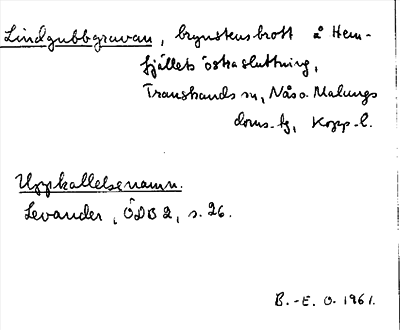 Lindgubbgravan, brynstensbrott å Hem-
fjällets östra sluttning,
Transtrands sn, Nås o. Malungs
doms.-tg, Kopp. l.
Uppkallelsenamn.
Levander, ÖDB 2, s. 26.
B.-E. O. 1961.